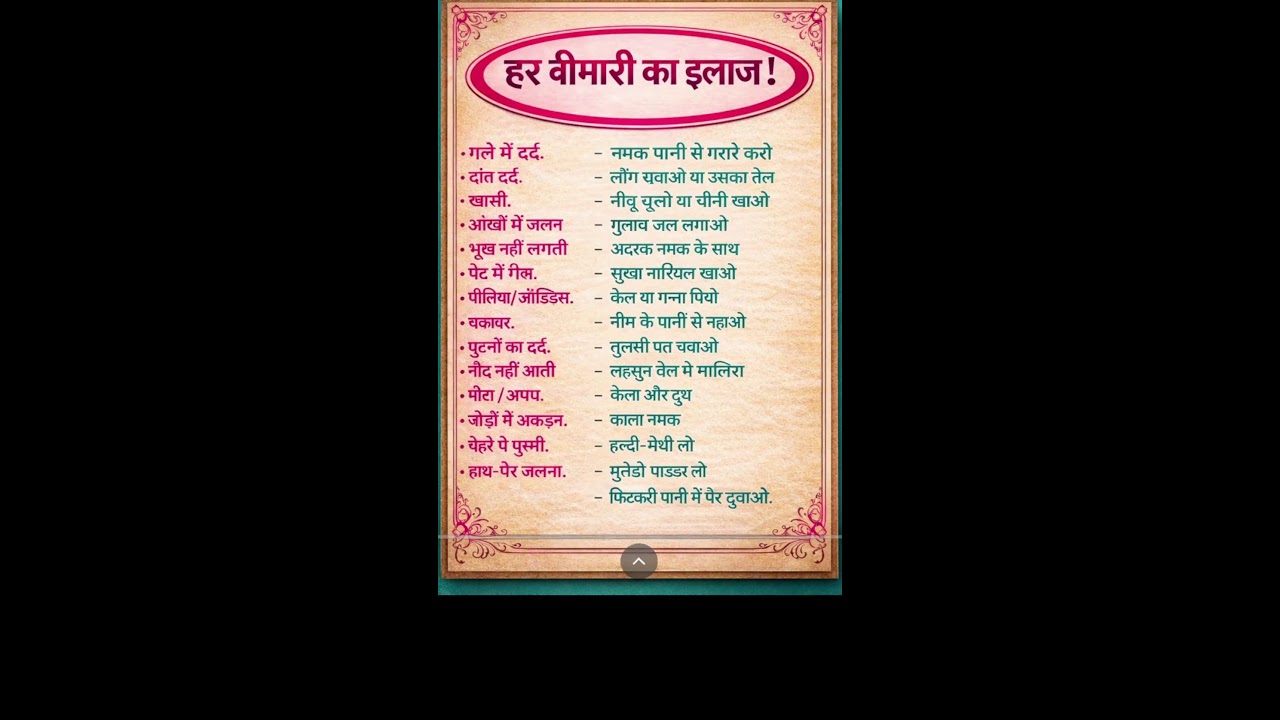 हर वीमारी का इलाज!
• गले में दर्द. – नमक पानी से गरारे करो
• दांत दर्द. – लौंग चवाओ या उसका तेल
• खासी. – नीवू चूलो या चीनी खाओ
• आंखों में जलन – गुलाव जल लगाओ
• भूख नहीं लगती – अदरक नमक के साथ
• पेट में – सुखा नारियल खाओ
• पीलिया/जॉडिड़स. – केल या गन्ना पियो
• वकावर. – नीम के पानीं से नहाओ
• पुटनों का दर्द. – तुलसी पत चवाओ
• नौद नहीं आती – लहसुन वेल मे मालिरा
• मोटा / अपप. – केला और दुथ
• जोड़ों में अकड़न. – काला नमक
• चेहरे पे पुस्मी. – हल्दी-मेथी लो
• हाथ-पेर जलना. – मुतेडो पाडडर लो
– फिटकरी पानी में पैर दुवाओ.